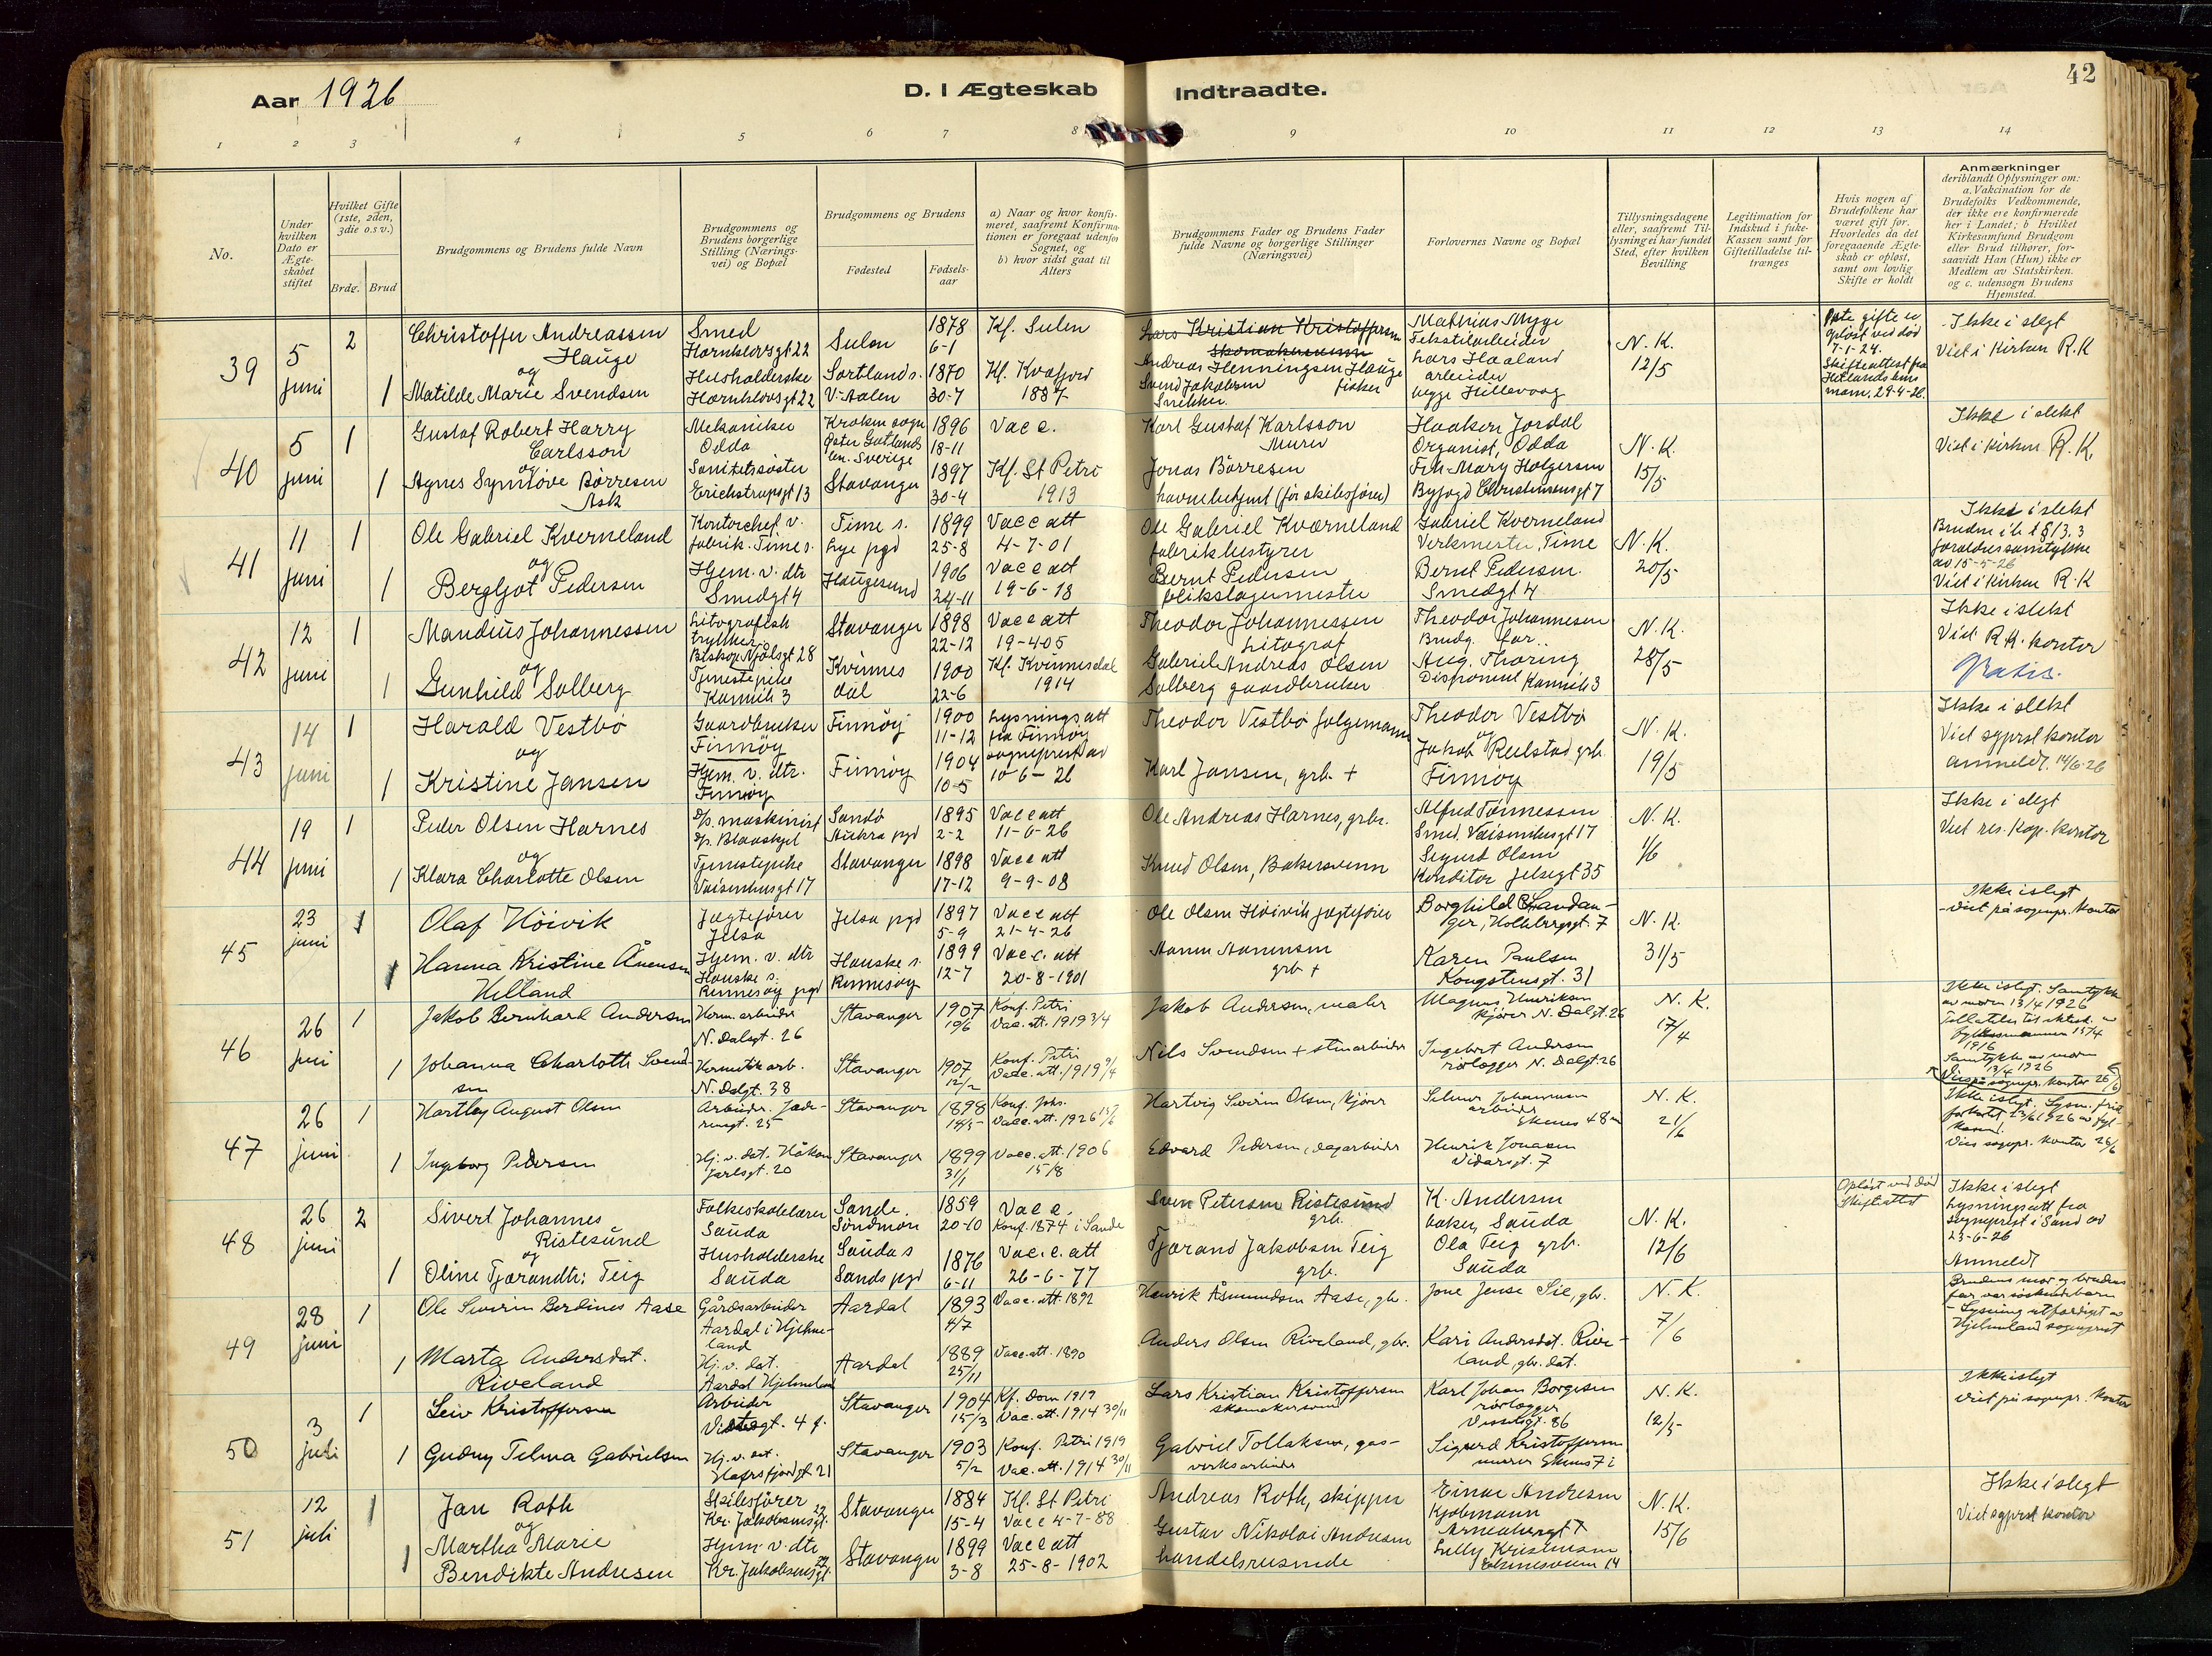 Aar 1926
D. I Ægteskab Indtraadte.
42
1 2 3 4 5 6 7 8 9 10 11 12 13 14
No.
Under hvilken Dato er Ægteskabet stiftet
Hvilket Gifte (1ste, 2den, 3die o.s.v.)
Brdg. Brud
Brudgommens og Brudens fulde Navn
Brudgommens og Brudens borgerlige Stilling (Næringsvei) og Bopæl
Brudgommens og Brudens
Fødested
Fødselsaar
a) Naar og hvor konfirmeret, saafremt Konfirmationen er foregaat udenfor Sognet, og
b) hvor sidst gaat til Alters
Brudgommens Fader og Brudens Fader fulde Navne og borgerlige Stillinger (Næringsvei)
Forlovernes Navne og Bopæl
Tillysningsdagene eller, saafremt Tillysning ei har fundet Sted, efter hvilken Bevilling
Legitimation for Indskud i fuke-Kassen samt for Giftetilladelse tiltrænges
Hvis nogen af Brudefolkene har været gift før. Hvorledes da det foregaaende Ægteskab er opløst, samt om lovlig Skifte er holdt
Anmærkninger
deriblandt Oplysninger om: a. Vakcination for de Brudefolks Vedkommende, der ikke ere konfirmerede her i Landet; b Hvilket Kirkesamfund Brudgom eller Brud tilhører, forsaavidt Han (Hun) ikke er Medlem av Statskirken. og c. udensogn Brudens Hjemsted.
39
5 juni
2
Christoffer Andreassen Hauge
og
1
Matilde Marie Svendsen
Smed
Harnklovsgt 22
Husholderske
Harnklovsgt 22
Sulen
Sortlands.
V-Aalen
1878
6-1
1870
30-7
Kf. Sulen
Kf. Kvafjord
1887
Lars Kristian Kristoffersen
Skomakersvenn
Andreas Henningsen Hauge
fisker
Svend Jakobsen
Snekker.
Mathias Myge
Fekstilarbeider
Lars Haaland
arbeider
begge Hillevaag
N. K.
12/5
1ste gifte er
opløst ved død
7-1-24.
Skifteattest fra
Hetlands lens
mann. 29-4-26.
Ikke i slegt
Viet i Kirken R.K
40
5 juni
1
Gustaf Robert Harry
Carlsson
og
1
Agnes Synnøve Børresen
Ask
Mekaniker
Odda
Sanitetssøster
Erichstrupsgt 13
Kroken sogn
Øster Gotlands
len. Sverige
Stavanger
1896
18-11
1897
30-4
Vacc.
Kf. St Petri
1913
Karl Gustaf Karlsson
Murer
Jonas Børresen
havnebetjent (før skibsfører)
Haaken Jordal
Organist, Odda
Frk. Mary Holgersen
Byfogd Christensensgt 7
N. K.
15/5
Ikke i slekt
Viet i kirken R. K.
41
11 juni
1
Ole Gabriel Kverneland
og
1
Bergljot Pedersen
Kontorchef v.
fabrik. Time s.
Hjem. v. dtr
Smedgt 4
Time s.
Lye pgd
Haugesund
1899
25-8
1906
24-11
Vacc att
4-7-01
Vacc att
19-6-18
Ole Gabriel Kverneland
fabrikbestyrer
Bernt Pedersen
blikslagermester
Gabriel Kverneland
Verkmester, Time
Bernt Pedersen.
Smedgt 4
N. K.
20/5
Ikke i slekt
Bruden i h.t § 13. 3
forældres samtykke
av 15-5-26
Viet i kirken R.K
42
12 juni
1
Mandius Johannessen
og
1
Gunhild Solberg
Litografisk
trykker
Biskop Njålsgt 28
Tjenestepike
Kannik 3
Stavanger
Kvinnes
dal
1898
22-12
1900
22-6
Vacc att
19-4-05
Kf. Kvinnesdal
1914
Theodor Johannessen
Litograf
Gabriel Andreas Olsen
Solberg gaardbruker
Theodor Johannesen
Brudg. far.
Aug. Thoring
Disponent Kannik 3
N. K.
28/5
Ikke i slekt
Viet R.K. kontor
Gratis.
43
14 juni
1
Harald Vestbø
og
1
Kristine Jansen
Gaardbruker
Finnøy
Hjem. v. dtr.
Finnøy
Finnøy
Finnøy
1900
11-12
1904
10-5
Lysningsatt
fra Finnøy
sogneprest av
10-6-26
Theodor Vestbø folgemann
Karl Jansen, grb. +
Theodor Vestbø
og
Jakob Reilstad grb.
Finnøy
N. K.
19/5
Ikke i slekt
Viet sgprst kontor
anmeldt. 14/6-26
44
19 juni
1
Peder Olsen Harnes
og
1
Klara Charlotte Olsen
d/s. maskinist
d/s. Blaaskjel
Tjenestepike
Vaisenhusgt 17
Sandø
Aukra pgd
Stavanger
1895
2-2
1898
17-12
Vacc att
11-6-26
Vacc att
9-9-08
Ole Andreas Harnes, grbr.
Knud Olsen, Bakersvenn
Alfred Tønnessen
Smed. Vaisenhusgt 17
Sigurd Olsen
Konditor Jelsegt 35
N. K.
1/6
Ikke i slegt
Viet res. kap. kontor
45
23 juni
1
Olaf Høivik
1
Hanna Kristine Ånensen
Helland
Jægtefører
Jelsa
Hjem. v. dtr
Hauske s.
Rennesøy prgd
Jelsa pgd
Hauske s.
Rennesøy
1897
5-9
1899
12-7
Vacc att
21-4-26
Vacc. att
20-8-1901
Ole Olsen Høivik jægtefører
Aanen Aanensen
grb +
Borghild Sandanger, Holbbergsgt. 7
Karen Paulsen
Kongstensgt. 31
N. K.
31/5
Ikke i slegt
- viet på sogepr. kontor
46
26 juni
1
Jakob Bernhard Andersen
1
Johanna Charlotte Svendsen
Herm. arbeider
N. Dalsgt. 26
Hermetikkarb.
N. Dalgt. 38
Stavanger
Stavanger
1907
10/6
1907
12/2
Konf. Petri
Vacc. att. 1919 3/4
Konf. Petri
Vacc. att. 1919 9/4
Jakob Andersen, maler
Nils Svendsen + stenarbeider
Magnus Henriksen
kjører N. Dalgt. 26
Ingebret Andersen
rørlegger N. Dalgt. 26
N. K.
17/4
Ikke i slegt. Samtykke
av moren 13/4 1926
Samtykke av moren
13/4 1926
Vies på sogepr. kontor 26/6
47
26 juni
1
Hartley August Olsen
1
Ingeborg Pedersen
Arbeider. Jæderensgt. 25
Hj. v. dat. Håkon
Jarlsgt. 20
Stavanger
Stavanger
1898
1899
31/1
Konf. Johs.
Vacc. att. 1926
Vacc. att. 1906
15/8
Hartvig Severin Olsen, kjører
Edvard Pedersen, dagarbeider
Selmer Johannesen
arbeider
Ekenes 48
Henrik Jonasen
Vidarsgt. 7
N. K.
21/6
Ikke i slegt.
Vies sogepr. kontor 26/6
48
26 juni
2
Sivert Johannes
Ristesund
og
1
Oline Tjærandtr. Teig
Folkeskolelærer
Sauda
Husholderske
Sauda
Sande.
Søndmøre
Sauda s
Sands pgd
1859
20-10
1876
6-11
Vacc.
Konf. 1874 i Sande
Vacc. att
26-6-77
Sven Petersen Ristesund
grb.
Tjærand Jakobsen Teig
grb.
K. Andersen
baker, Sauda
Ola Teig grb.
Sauda
N. K.
12/6
Opløst ved død
Skifteattest
Ikke i slegt
Lysningsatt fra
sogneprest i Sand av
23-6-26
Anmeldt
49
28 juni
1
Ole Severin Berdines Aase
1
Marta Andersdat.
Riveland
Gårdsarbeider
Aardal i Hjelmeland
Hj. v. dat.
Aardal Hjelmeland
Aardal
Aardal
1893
4/7
1889
25/11
Vacc. att. 1892
Vacc. att. 1890
Henrik Åsmundsen Aase, gbr.
Anders Olsen Riveland, gbr.
Jone Jense Sie, gbr.
Kari Andersdat. Riveland, gbr. dat.
N. K.
7/6
Brudens mor og brudens
far var søskendebarn
- Lysning utfærdiget av
Hjelmeland sogneprest
50
3 juli
1
Leiv Kristoffersen
1
Gudny Telma Gabrielsen
Arbeider
Hj. v. dat.
Hafrsfjordgt. 21
Stavanger
Stavanger
1904
15/3
1903
5/2
Kf. Dom 1919
Vac. att. 1914 30/11
Konf. Petri 1919
Vac. att. 1914 30/11
Lars Kristian Kristoffersen
skomakersvend
Gabriel Tollaksen, gasverksarbeider
Karl Johan Borgesen
rørlegger
Sigurd Kristoffersen
murer Ekenes 7 i
N. K.
12/5
Ikke i slegt
viet på sogepr. kontor
51
12 juli
1
Jan Roth
og
1
Martha Marie
Bendikte Andresen
Skibsfører
Kr. Jakobsensgt. 22
Hjem. v. dtr
Kr. Jakobsensgt. 22
Stavanger
Stavanger
1884
15-4
1899
3-8
Kf. St Petri
Vacc 4-7-88
Vacc att
25-8-1902
Andreas Roth, skipper
Gustav Nikolai Andresen
handelsreisende
Einar Andresen
Kjøbmann
Lelly Kristensen
N. K.
15/6
Ikke i slegt
Viet sgprst kontor